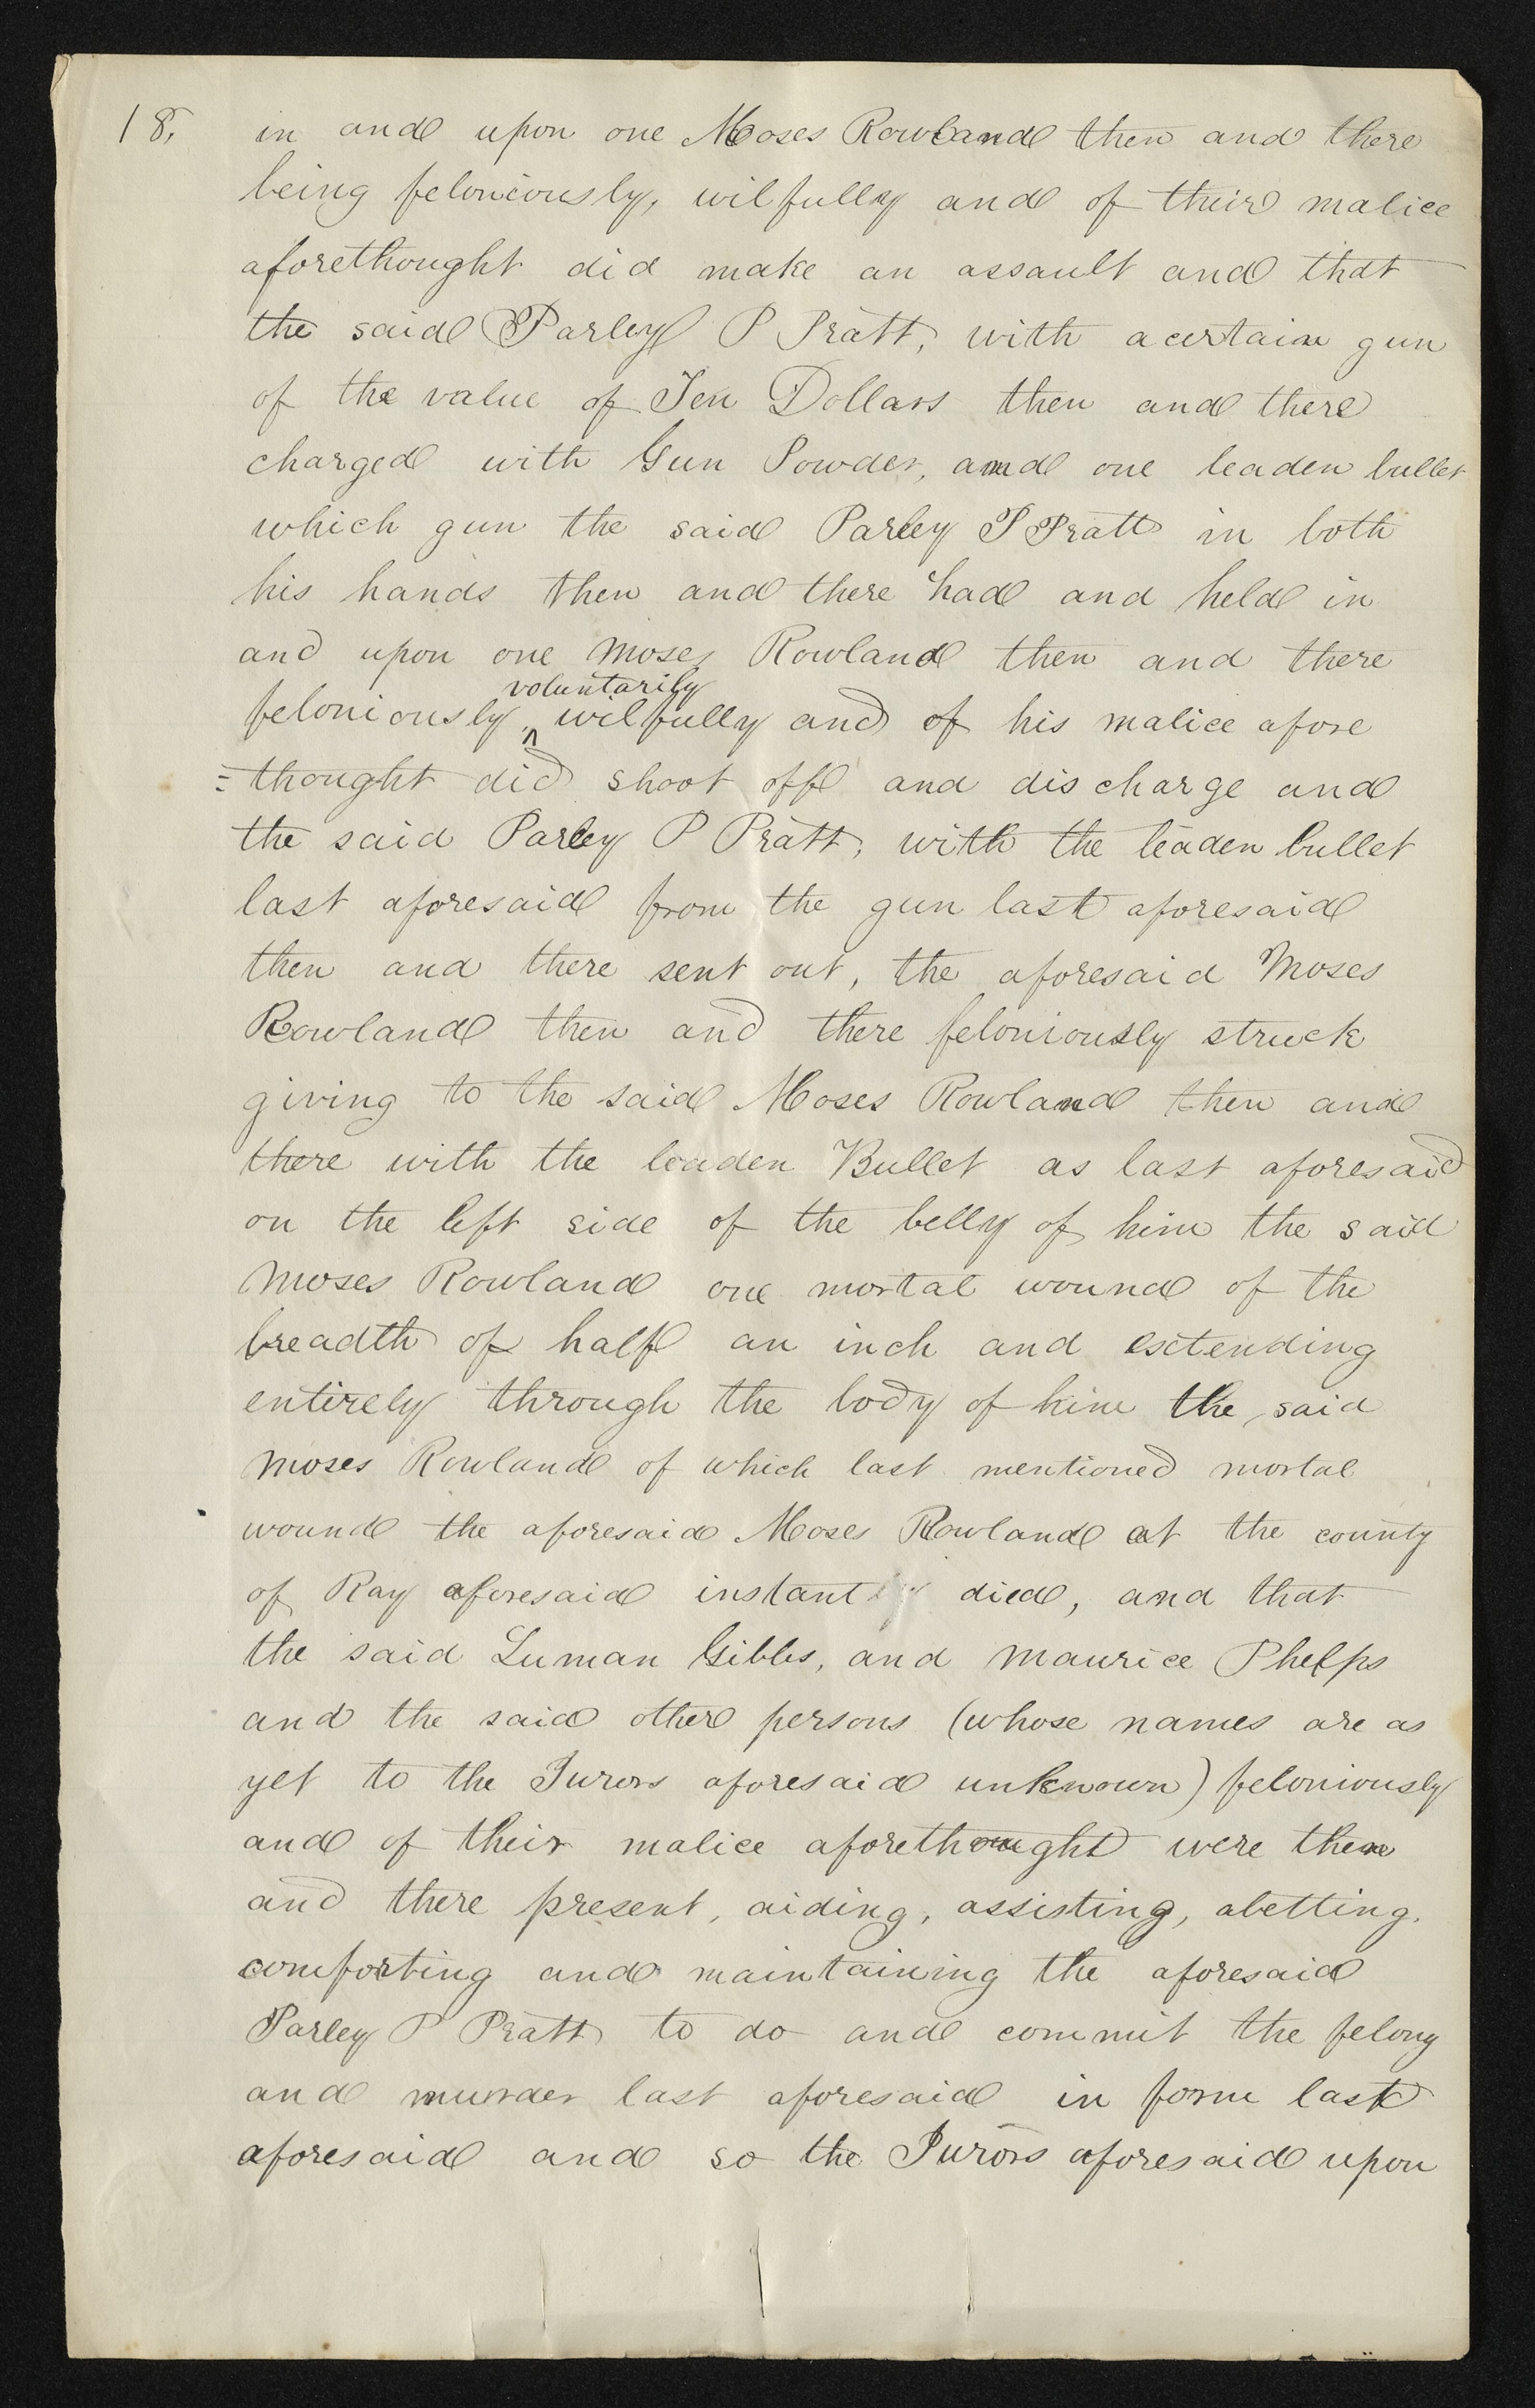 18. in and upon one Moses Rowland then and there
being feloniously, wilfully and of their malice
aforethought did make an assault and that
the said Parley P Pratt, with a certain gun
of the value of Ten Dollars then and there
charged with Gun Powder, and one leaden bullet
which gun the said Parley P Pratt in both
his hands then and there had and held in
and upon one Moses Rowland then and there
voluntarily
feloniously ^ wilfully and of his malice afore
=thought did shoot off and discharge and
the said Parley P Pratt, with the leaden bullet
last aforesaid from the gun last aforesaid
then and there sent out, the aforesaid Moses
Rowland then and there feloniously struck
giving to the said Moses Rowland then and
there with the leaden Bullet as last aforesaid
on the left side of the belly of him the said
Moses Rowland one mortal wound of the
breadth of half an inch and extending
entirely through the body of him the said
Moses Rowland of which last mentioned mortal
wound the aforesaid Moses Rowland at the county
of Ray aforesaid instantly died, and that
the said Luman Gibbs, and Maurice Phelps
and the said other persons (whose names are as
yet to the Jurors aforesaid unknown) feloniously
and of their malice aforethought were then
and there present, aiding, assisting, abetting,
comforting and maintaining the aforesaid
Parley P Pratt to do and commit the felony
and murder last aforesaid in form last
aforesaid and so the Jurors aforesaid upon